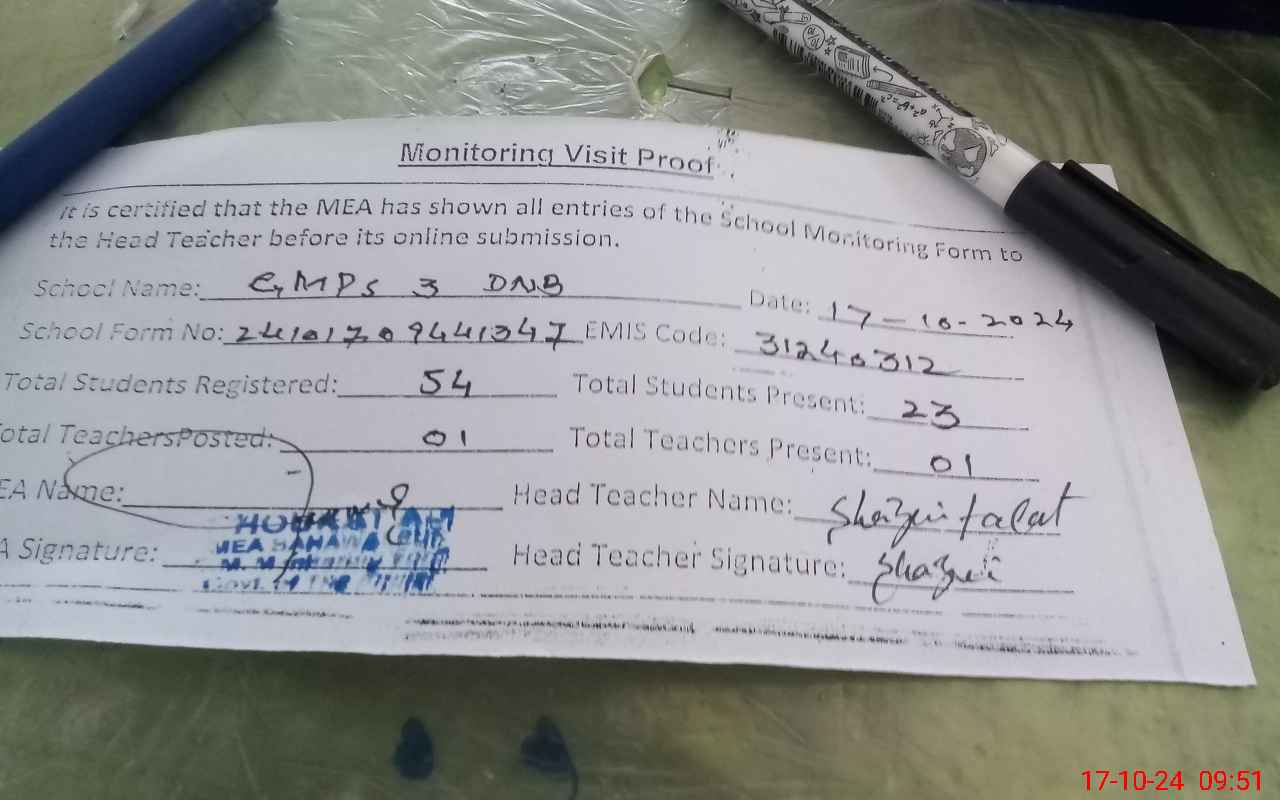 Monitoring Visit Proof
It is certified that the MEA has shown all entries of the School Monitoring Form to
the Head Teacher before its online submission.
School Name: GMPS 3 DNB Date: 17-10-2024
School Form No: 24101709441347 EMIS Code: 31240312
Total Students Registered: 54 Total Students Present: 23
otal TeachersPosted: 01 Total Teachers Present: 01
EA Name: Head Teacher Name: Shazia talat
A Signature: Head Teacher Signature: Shazia
MEA BAHAWALPUR
17-10-24 09:51